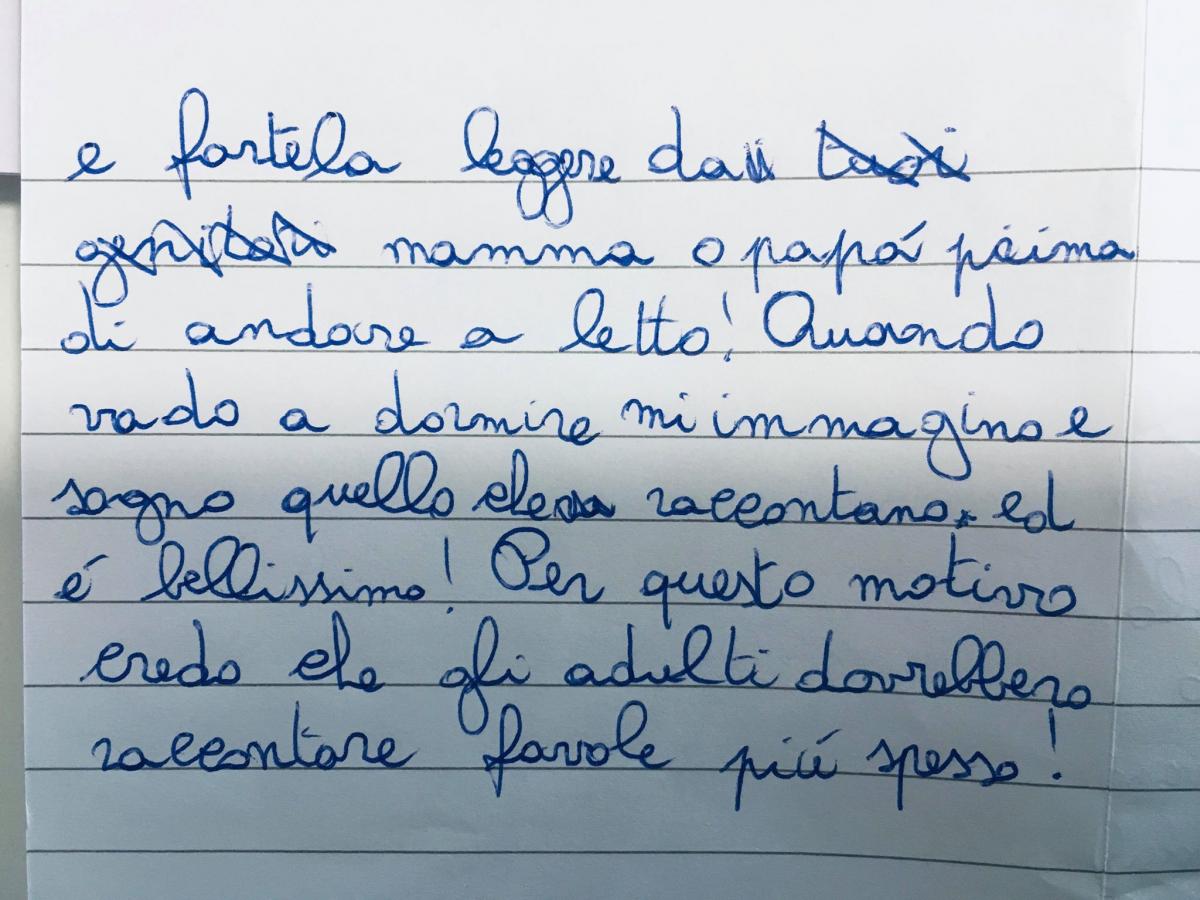 e fartela leggere da tuoi
genitori mamma o papá prima
di andare a letto! Quando
vado a dormire mi immagino e
sogno quello che raccontano, ed
é bellissimo! Per questo motivo
credo che gli adulti dovrebbero
raccontare favole piú spesso!